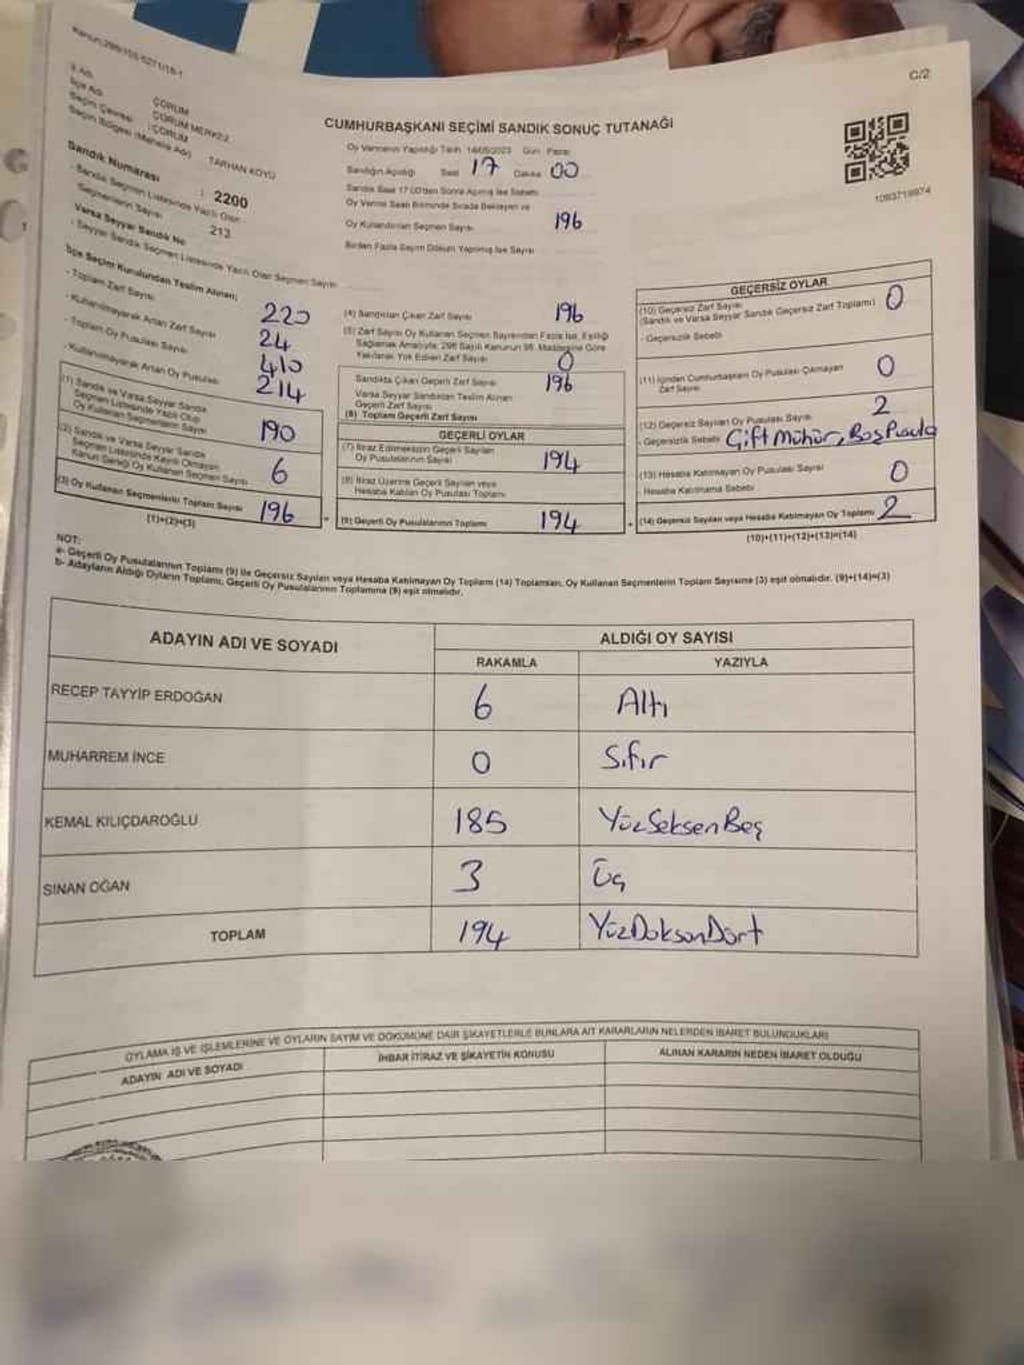 Kanun:298/105-6271/18-1
C/2
İl Adı : ÇORUM
İlçe Adı : ÇORUM MERKEZ
Seçim Çevresi : ÇORUM
Seçim Bölgesi (Mahalle Adı) TARHAN KÖYÜ
Sandık Numarası : 2200
- Sandık Seçmen Listesinde Yazılı Olan Seçmenlerin Sayısı 213
Varsa Seyyar Sandık No
- Seyyar Sandık Seçmen Listesinde Yazılı Olan Seçmen Sayısı
CUMHURBAŞKANI SEÇİMİ SANDIK SONUÇ TUTANAĞI
Oy Vermenin Yapıldığı Tarih 14/05/2023 Gün Pazar
Sandığın Açıldığı Saat 17 Dakika 00
Sandık Saat 17.00'den Sonra Açılmış İse Sebebi
Oy Verme Saati Bitiminde Sırada Bekleyen ve
Oy Kullandırılan Seçmen Sayısı 196
Birden Fazla Sayım Döküm Yapılmış İse Sayısı
1093719974
İlçe Seçim Kurulundan Teslim Alınan;
- Toplam Zarf Sayısı 220
- Kullanılmayarak Artan Zarf Sayısı 24
- Toplam Oy Pusulası Sayısı 410
- Kullanılmayarak Artan Oy Pusulası 214
(1) Sandık ve Varsa Seyyar Sandık
Seçmen Listesinde Yazılı Olup
Oy Kullanan Seçmenlerin Sayısı 190
(2) Sandık ve Varsa Seyyar Sandık
Seçmen Listesinde Kayıtlı Olmayan
Kanun Gereği Oy Kullanan Seçmen Sayısı 6
(3) Oy Kullanan Seçmenlerin Toplam Sayısı 196
(1)+(2)=(3)
(4) Sandıktan Çıkan Zarf Sayısı 196
(5) Zarf Sayısı Oy Kullanan Seçmen Sayısından Fazla İse, Eşitliği
Sağlamak Amacıyla; 298 Sayılı Kanunun 98. Maddesine Göre
Yakılarak Yok Edilen Zarf Sayısı 0
Sandıkta Çıkan Geçerli Zarf Sayısı 196
Varsa Seyyar Sandıktan Teslim Alınan
Geçerli Zarf Sayısı
(6) Toplam Geçerli Zarf Sayısı
GEÇERLİ OYLAR
(7) İtiraz Edilmeksizin Geçerli Sayılan
Oy Pusulalarının Sayısı 194
(8) İtiraz Üzerine Geçerli Sayılan veya
Hesaba Katılan Oy Pusulası Toplamı
(9) Geçerli Oy Pusulalarının Toplamı 194
GEÇERSİZ OYLAR
(10) Geçersiz Zarf Sayısı
(Sandık ve Varsa Seyyar Sandık Geçersiz Zarf Toplamı) 0
- Geçersizlik Sebebi
(11) İçinden Cumhurbaşkanı Oy Pusulası Çıkmayan
Zarf Sayısı 0
(12) Geçersiz Sayılan Oy Pusulası Sayısı 2
- Geçersizlik Sebebi Çift Mühür, Boş Pusula
(13) Hesaba Katılmayan Oy Pusulası Sayısı 0
- Hesaba Katılmama Sebebi
(14) Geçersiz Sayılan veya Hesaba Katılmayan Oy Toplamı 2
(10)+(11)+(12)+(13)=(14)
NOT:
a- Geçerli Oy Pusulalarının Toplamı (9) ile Geçersiz Sayılan veya Hesaba Katılmayan Oy Toplamı (14) Toplamları, Oy Kullanan Seçmenlerin Toplam Sayısına (3) eşit olmalıdır. (9)+(14)=(3)
b- Adayların Aldığı Oyların Toplamı, Geçerli Oy Pusulalarının Toplamına (9) eşit olmalıdır.
ADAYIN ADI VE SOYADI
ALDIĞI OY SAYISI
RAKAMLA YAZIYLA
RECEP TAYYİP ERDOĞAN 6 Altı
MUHARREM İNCE 0 Sıfır
KEMAL KILIÇDAROĞLU 185 YüzSeksenBeş
SİNAN OĞAN 3 Üç
TOPLAM 194 YüzDoksanDört
OYLAMA İŞ VE İŞLEMLERİNE VE OYLARIN SAYIM VE DÖKÜMÜNE DAİR ŞİKAYETLERLE BUNLARA AİT KARARLARIN NELERDEN İBARET BULUNDUKLARI
ADAYIN ADI VE SOYADI
İHBAR İTİRAZ VE ŞİKAYETİN KONUSU
ALINAN KARARIN NEDEN İBARET OLDUĞU